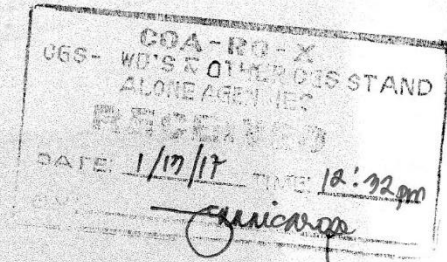 COA-RO-X
CGS- WD'S & OTHER CGS STAND
ALONE AGENCIES
RECEIVED
DATE: 1/17/17 TIME: 12:32pm